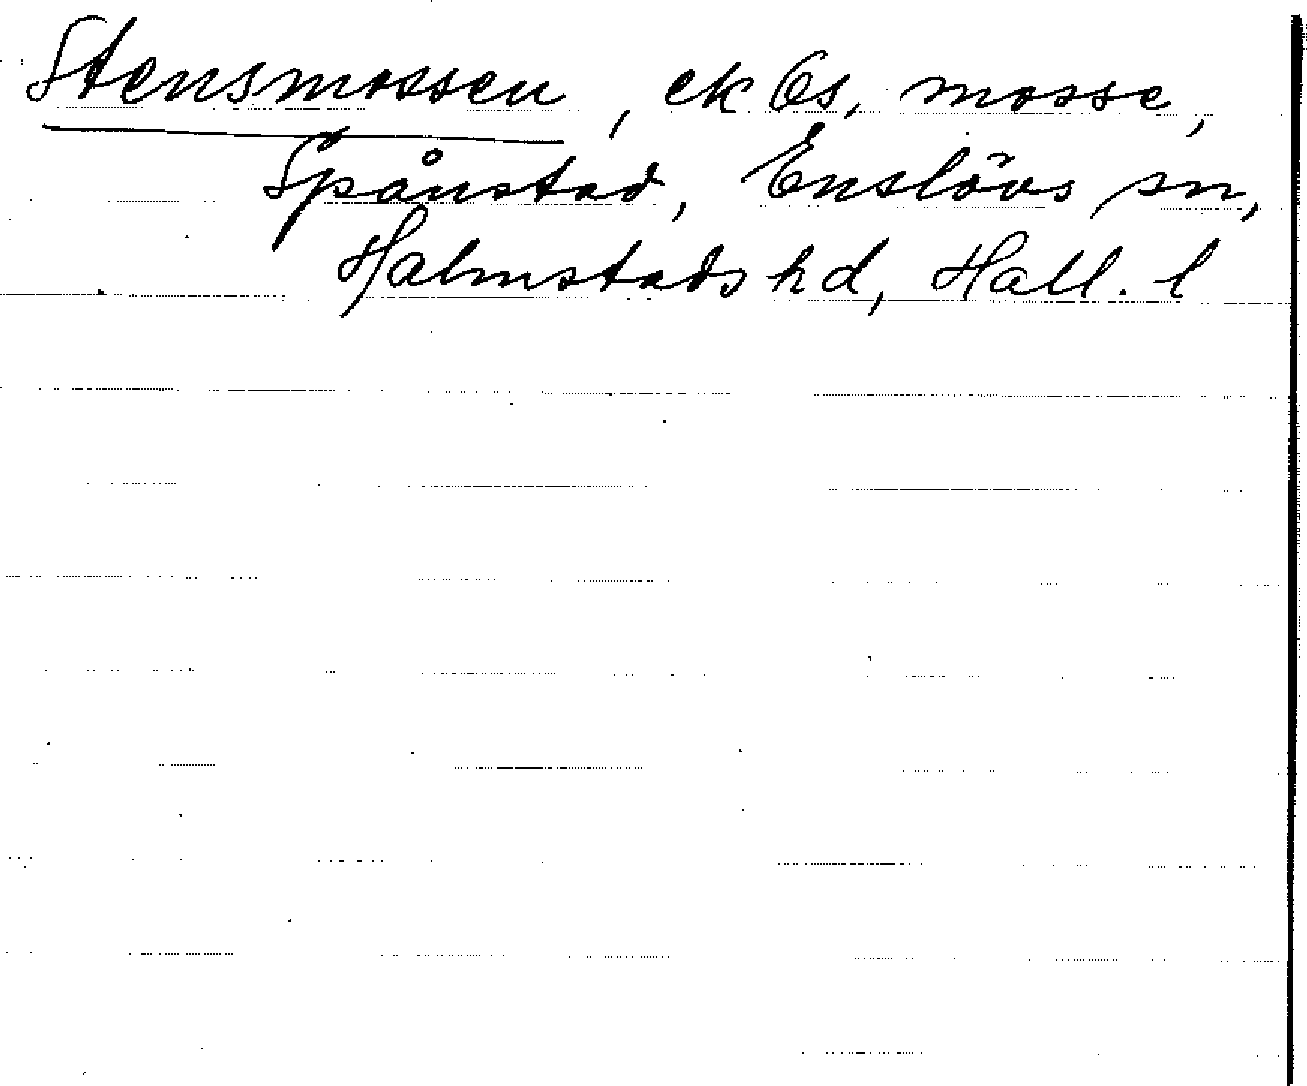 Stensmossen, ek Es, mosse,
Spånstad, Enslövs sn,
Halmstads hd, Hall. l